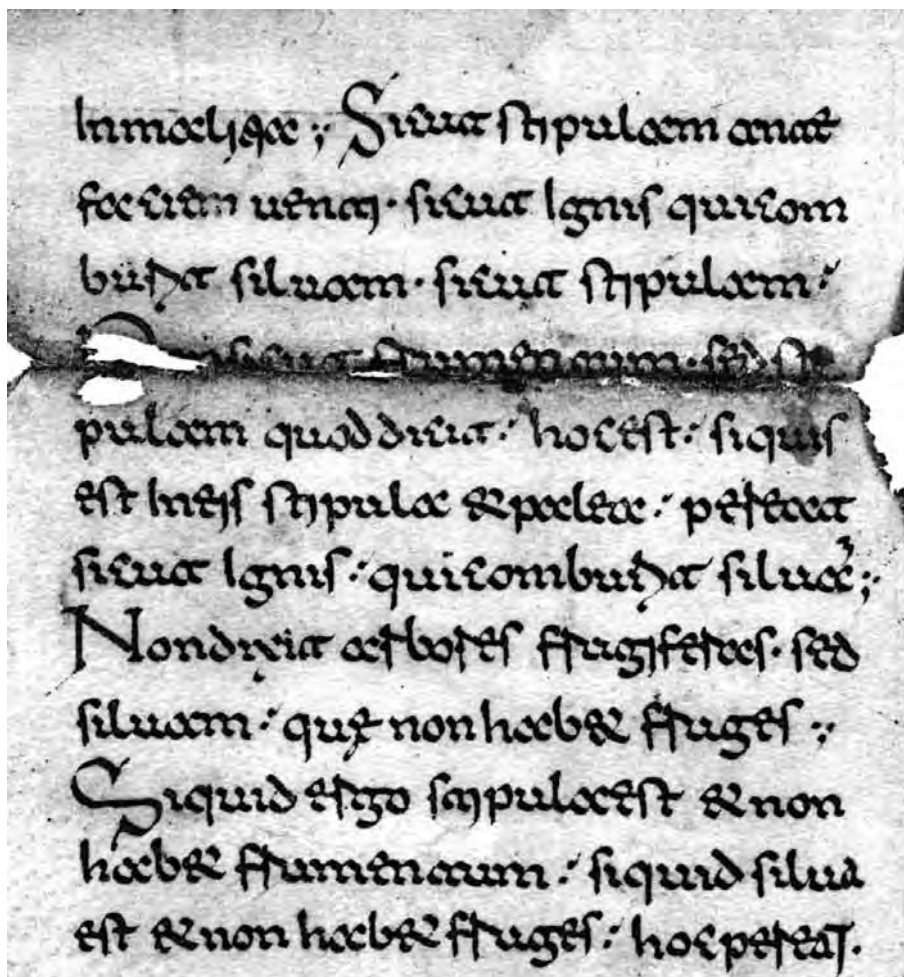 In malitia ; Sicut stipulam ante
faciem uenti · sicut Ignis qui com
burit siluam · sicut stipulam :
sicut frumentum · sed sti
pulam quod dicit : hoc est : si quis
est In eis stipula & palea : pereat
sicut Ignis : qui comburit siluā ;
Non dicit arbores frugiferas · sed
siluam : quę non hab& fruges ;
Si quid ergo stipula est & non
hab& frumentum : si quid silua
est & non hab& fruges : hoc pereat ·